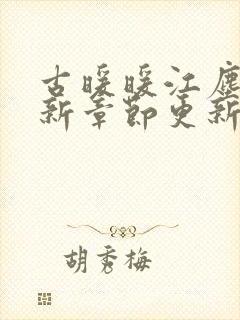 古暖暖江尘
新章节更新
胡秀梅